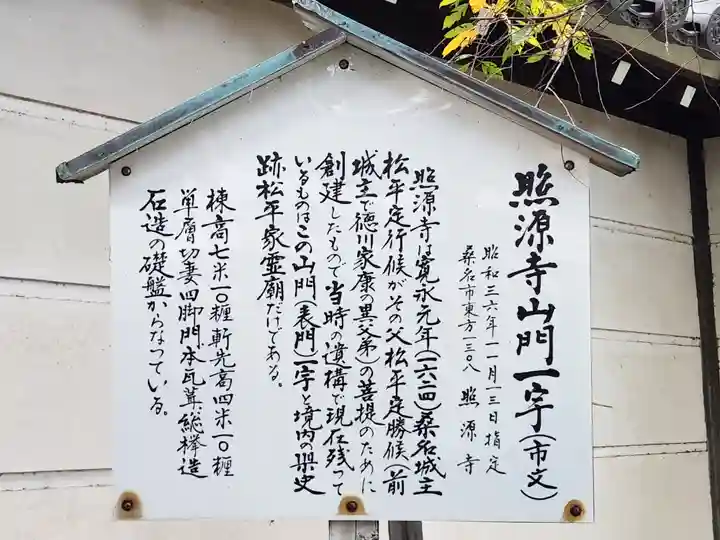 照源寺山門一宇(市文)
昭和三六年一一月一三日指定
桑名市東方一三〇八 照源寺
照源寺は寛永元年(一六二四)桑名城主
松平定行候がその父松平定勝候(前
城主で徳川家康の異父弟)の菩提のために
創建したもので当時の遺構で現在残って
いるものはこの山門(表門)一宇と境内の県史
跡松平家霊廟だけである。
棟高七米一〇糎軒先高四米一〇糎
単層切妻四脚門、本瓦葺、総欅造
石造の礎盤からなっている。